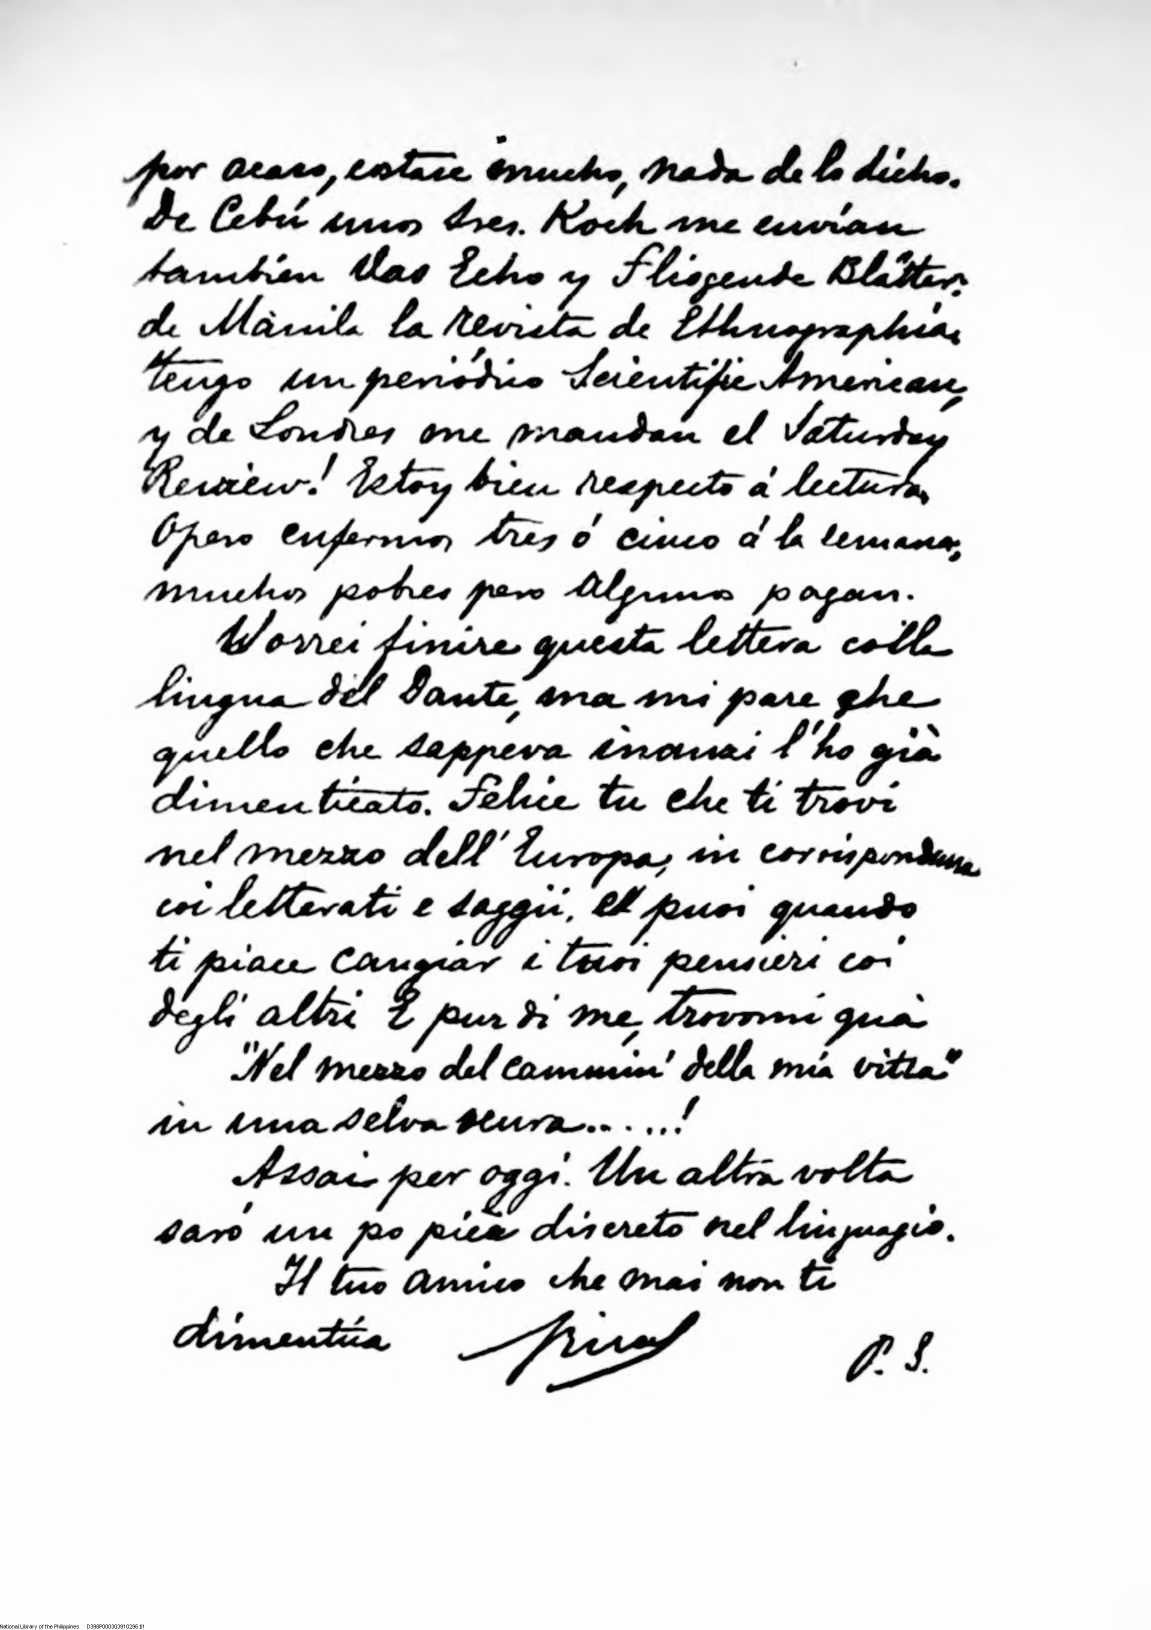 por acaso, costase mucho, nada de lo dicho.
De Cebú unos Sres. Koch me envían
tambien Das Echo y Fliegende Blätter;
de Mánila la revista de Ethnographia,
tengo un periódico Scientific American,
y de Londres me mandan el Saturday
Review! Estoy bien respecto á lectura,
Opero enfermos tres ó cinco á la semana,
muchos pobres pero algunos pagan.
Vorrei finire questa lettera colla
lingua del Dante, ma mi pare che
quello che sappeva inanzi l'ho già
dimenticato. Felice tu che ti trovi
nel mezzo dell' Europa, in corrispondenza
coi letterati e saggii, e puoi quando
ti piace cangiar i tuoi pensieri coi
degli altri E pur di me, trovomi quà
"Nel mezzo del cammin' della mia vitta"
in una selva scura......!
Assai per oggi. Un altra volta
saró un po piu discreto nel linguagio.
Il tuo amico che mai non ti
dimentica Rizal
P. S.
National Library of the Philippines